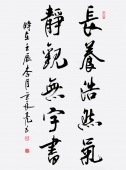 長養浩然氣
靜觀無字書
時在壬辰